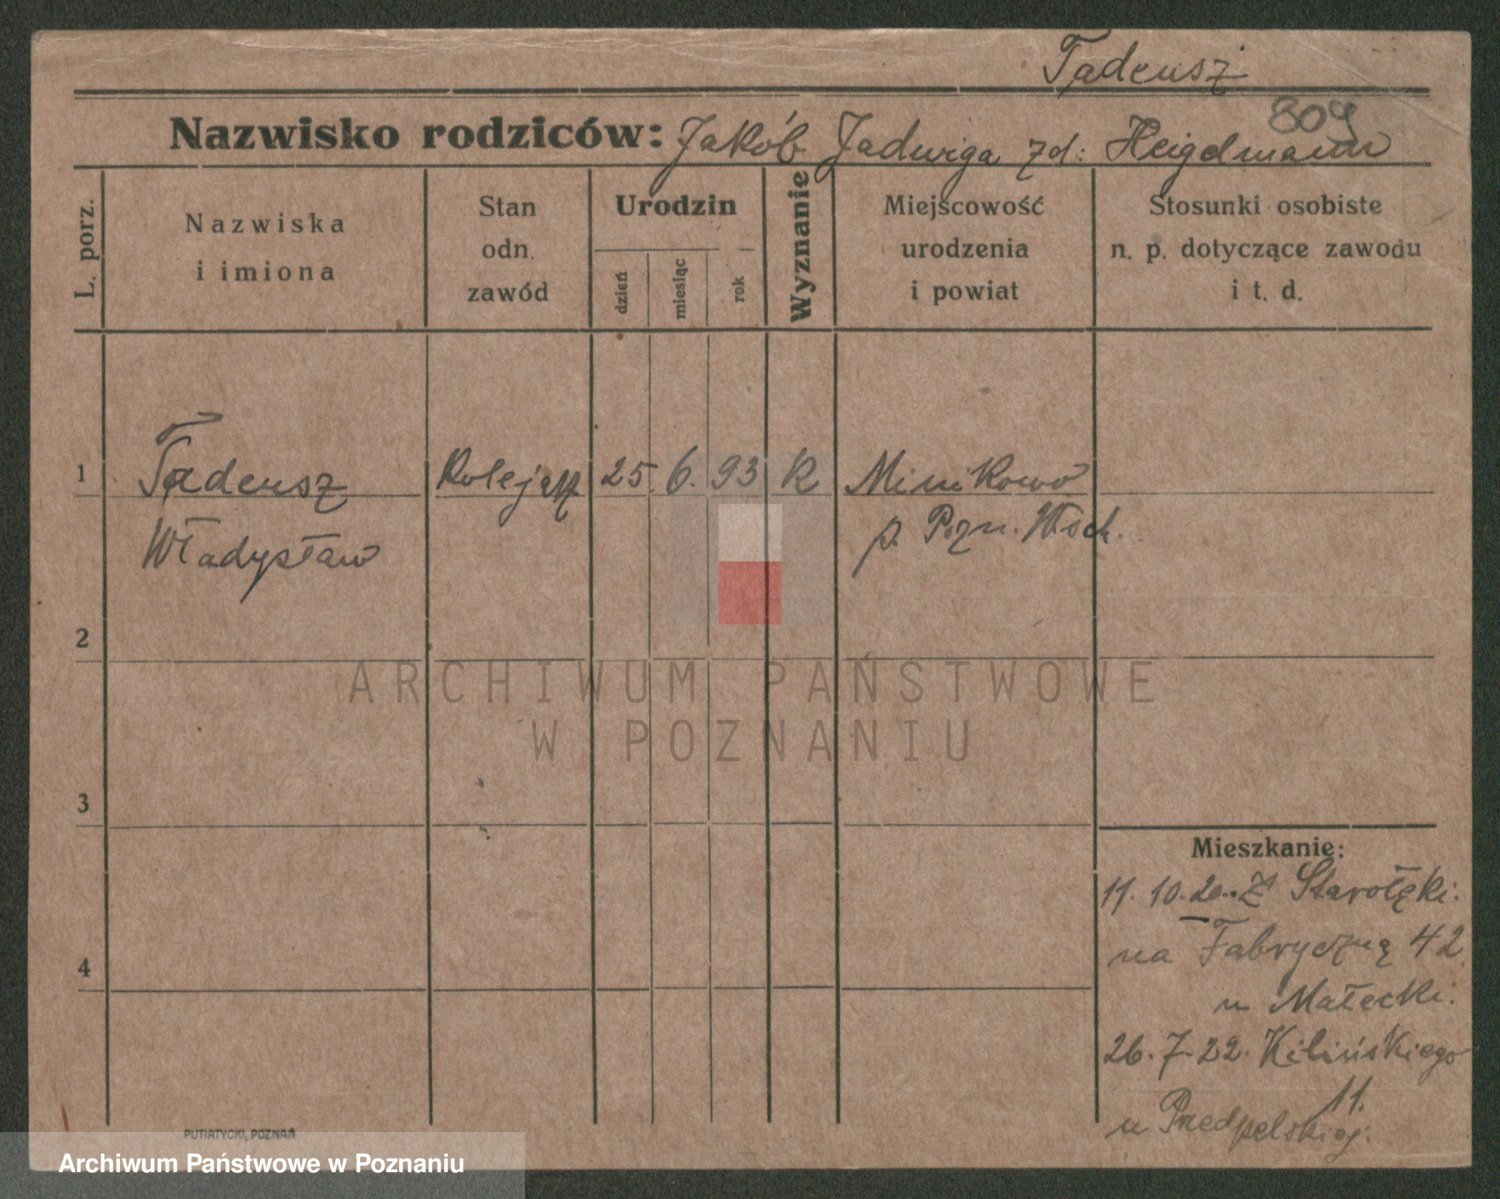 Tadeusz
809
Nazwisko rodziców: Jakób Jadwiga zd: Heigelmann
L. porz.
Nazwiska
i imiona
Stan
odn.
zawód
Urodzin
dzień
miesiąc
rok
Wyznanie
Miejscowość
urodzenia
i powiat
Stosunki osobiste
n. p. dotyczące zawodu
i t. d.
1
Tadeusz
Władysław
Kolejarz
25. 6. 93
K
Minikowo
p. Pozn. Wsch.
2
3
4
Mieszkanie:
11. 10. 20. Z Starołęki.
na Fabryczną 42
u Małecki.
26. 7. 22. Kilińskiego
11.
u Predpelskiej.
PUTIATYCKI, POZNAŃ
ARCHIWUM PAŃSTWOWE
W POZNANIU
Archiwum Państwowe w Poznaniu